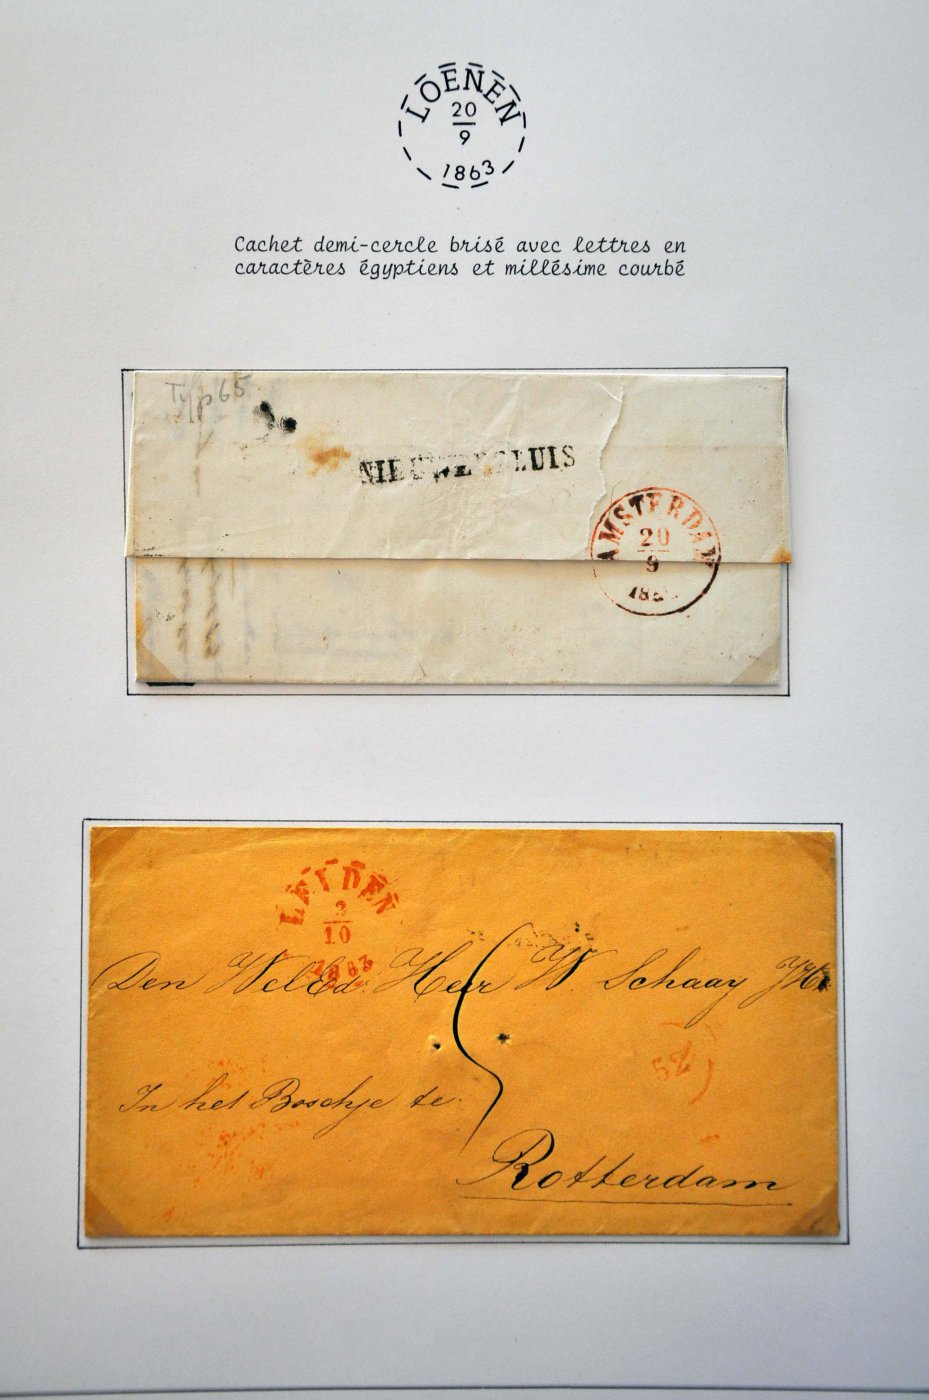 LOENEN
20
9
1863
Cachet demi-cercle brisé avec lettres en
caractères égyptiens et millésime courbé
Typ 65
NIEUWERSLUIS
AMSTERDAM
20
9
LEIDEN
2
10
1863
Den WelEd. Heer W. Schaay
5
52
In het Boschje te
Rotterdam